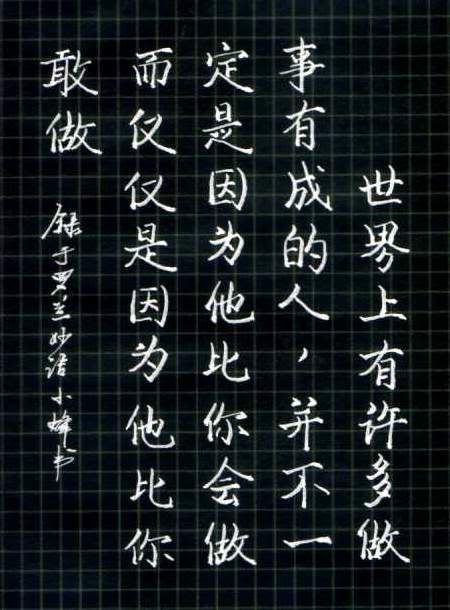 世界上有许多做
事有成的人，并不一
定是因为他比你会做
而仅仅是因为他比你
敢做
录于罗兰妙语小峰书